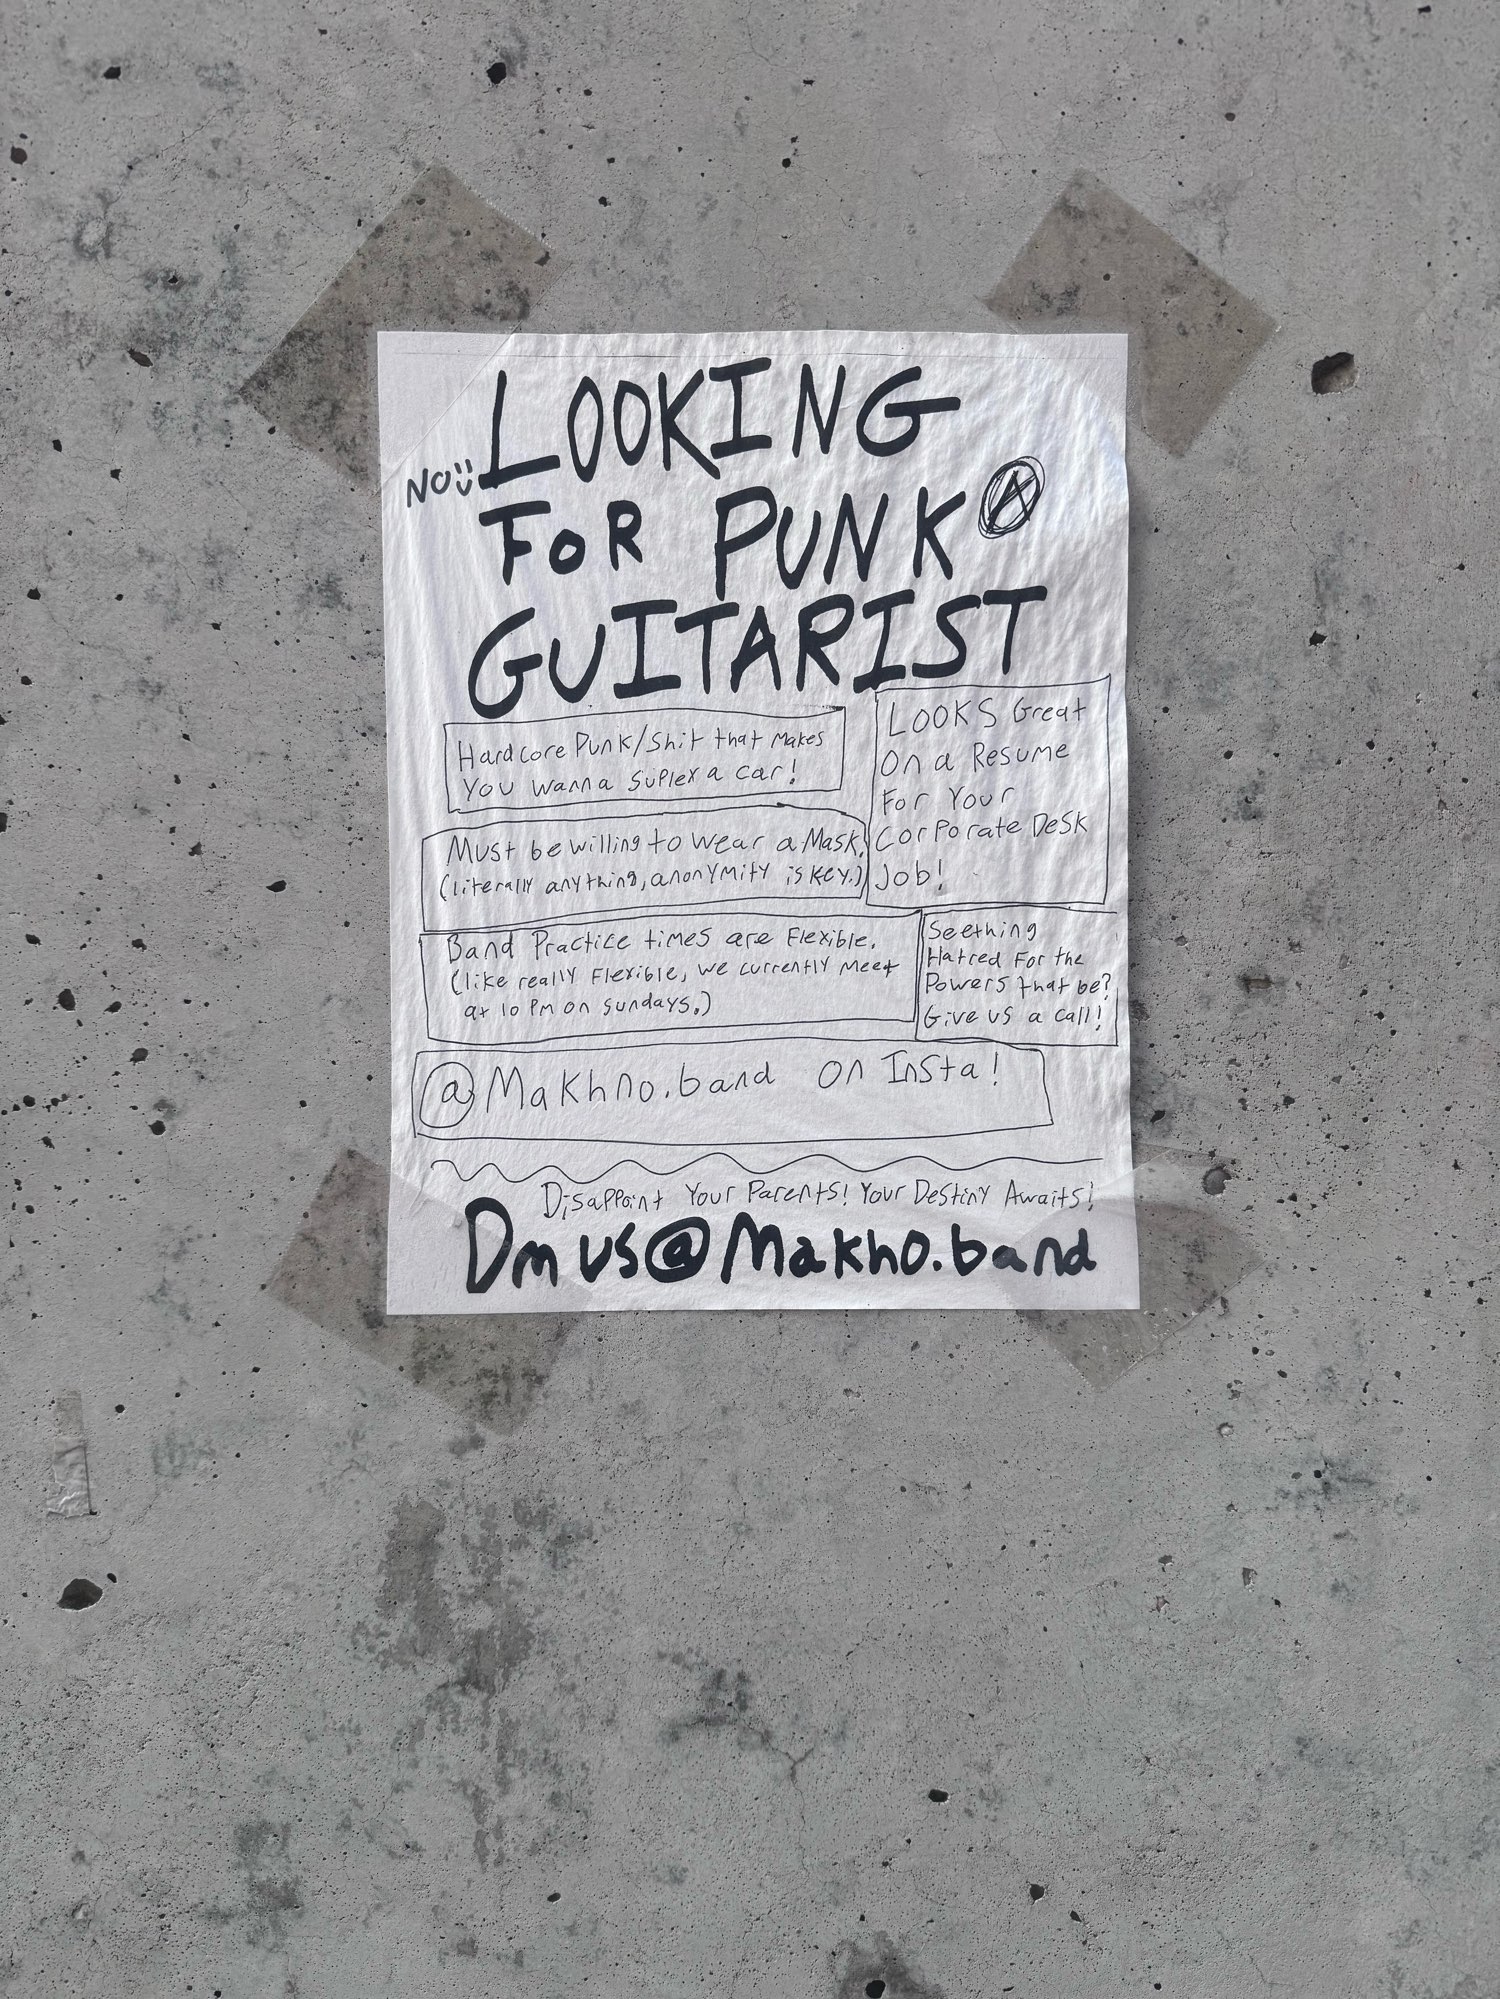 LOOKING
NO
FOR PUNK A
GUITARIST
Hardcore Punk/Shit that Makes
You Wanna Suplex a car!
LOOKS Great
On a Resume
For Your
Corporate Desk
Job!
Must be willing to wear a Mask.
(literally anything, anonymity is key.)
Band Practice times are Flexible.
(like really Flexible, we currently Meet
at 10 PM on Sundays.)
Seething
Hatred For the
Powers that be?
Give us a call!
@Makhno.band on Insta!
Disappoint Your Parents! Your Destiny Awaits!
Dm us@Makhno.band